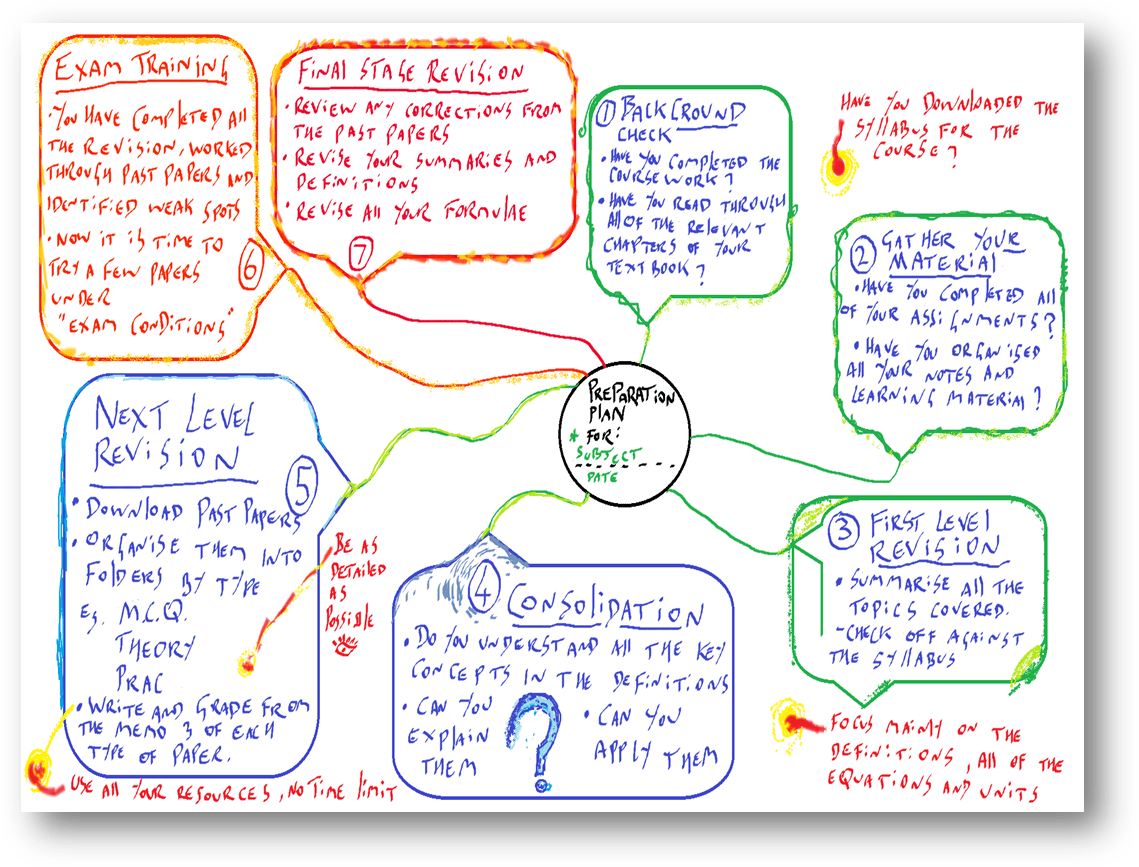 PREPARATION
PLAN
* FOR:
SUBJECT
PATE
① BACKGROUND
CHECK
• HAVE YOU COMPLETED THE
COURSE WORK?
• HAVE YOU READ THROUGH
All OF THE RELEVANT
CHAPTERS OF YOUR
TEXT BOOK?
HAVE YOU DOWNLOADED THE
SYLLABUS FOR THE
COURSE?
② GATHER YOUR
MATERIAL
• HAVE YOU COMPLETED All
OF YOUR ASSIGNMENTS?
• HAVE YOU ORGANISED
All YOUR NOTES AND
LEARNING MATERIAL?
③ FIRST LEVEL
REVISION
• SUMMARISE All THE
TOPICS COVERED.
- CHECK OFF AGAINST
THE SYLLABUS
FOCUS MAINLY ON THE
DEFINITIONS, All OF THE
EQUATIONS AND UNITS
④ CONSOLIDATION
• DO YOU UNDERSTAND All THE KEY
CONCEPTS IN THE DEFINITIONS
• CAN YOU
EXPLAIN
THEM
?
• CAN YOU
APPLY THEM
NEXT LEVEL
REVISION
⑤
• DOWNLOAD PAST PAPERS
• ORGANISE THEM INTO
FOLDERS BY TYPE
eg. M.C.Q.
THEORY
PRAC
• WRITE AND GRADE FROM
THE MEMO 3 OF EACH
TYPE OF PAPER.
BE AS
DETAILED
AS
POSSIBLE
USE All YOUR RESOURCES, NO TIME LIMIT
EXAM TRAINING
• YOU HAVE COMPLETED All
THE REVISION, WORKED
THROUGH PAST PAPERS AND
IDENTIFIED WEAK SPOTS
• NOW IT IS TIME TO
TRY A FEW PAPERS
UNDER
"EXAM CONDITIONS"
⑥
FINAL STAGE REVISION
• REVIEW ANY CORRECTIONS FROM
THE PAST PAPERS
• REVISE YOUR SUMMARIES AND
DEFINITIONS
• REVISE All YOUR FORMULAE
⑦